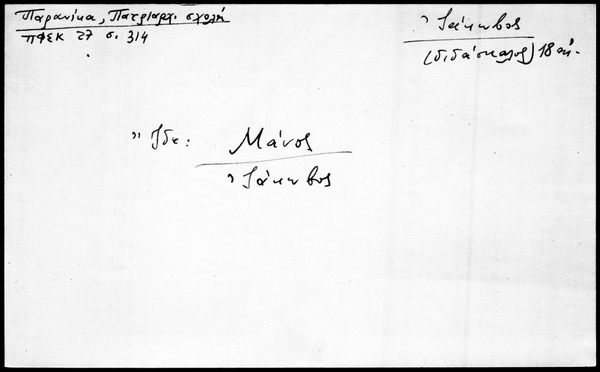 Παρανίκα, Πατριαρχ. σχολή
ΠΦΣΚ 27 σ. 314
Ἰάκωβος
(διδάσκαλος) 18 αἰ.
Ἴδε: Μάνος
Ἰάκωβος